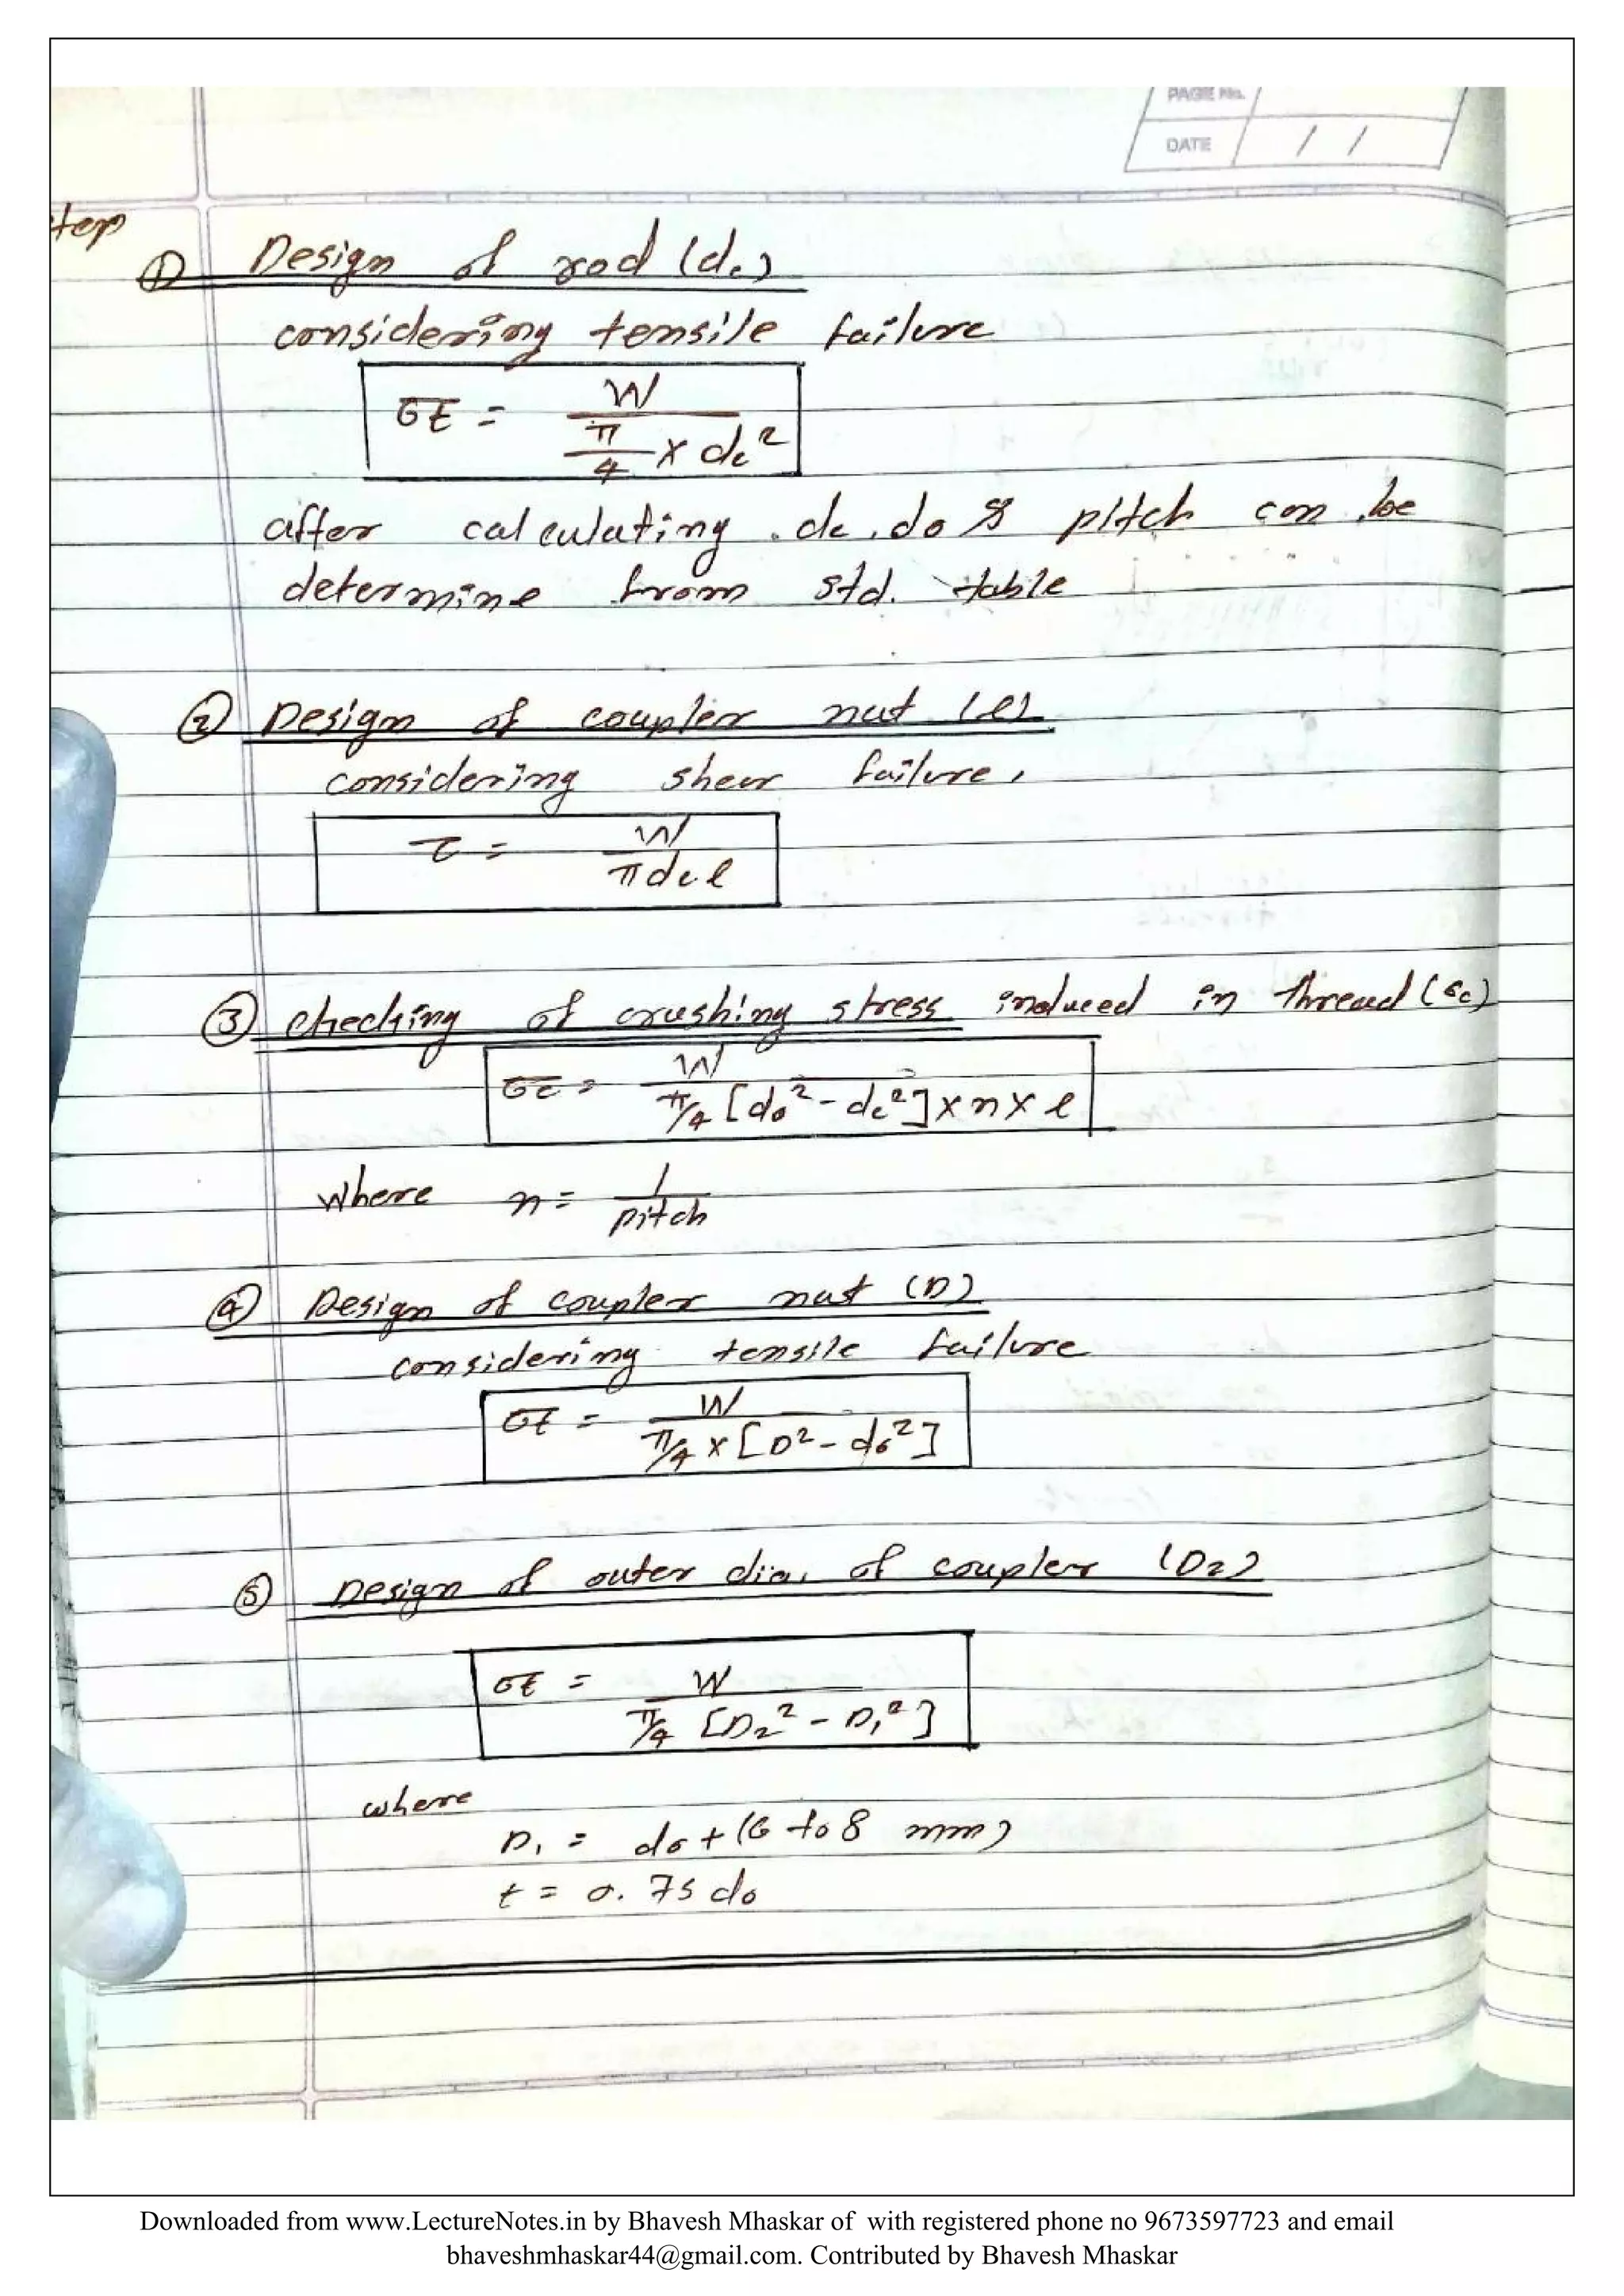 PAGE No.
DATE / /
step
① Design of rod (dc)
considering tensile failure
σt = W / (π/4 × dc²)
after calculating dc, do & pitch can be
determine from std. table
② Design of coupler nut (l)
considering shear failure,
τ = W / (π dc l)
③ checking of crushing stress induced in thread (σc)
σc = W / (π/4 [do² - dc²] × n × l)
where n = 1 / pitch
④ Design of coupler nut (D)
considering tensile failure
σt = W / (π/4 × [D² - do²])
⑤ Design of outer dia. of coupler (D2)
σt = W / (π/4 [D2² - D1²])
where
D1 = do + (6 to 8 mm)
t = 0.75 do
Downloaded from www.LectureNotes.in by Bhavesh Mhaskar of with registered phone no 9673597723 and email
bhaveshmhaskar44@gmail.com. Contributed by Bhavesh Mhaskar